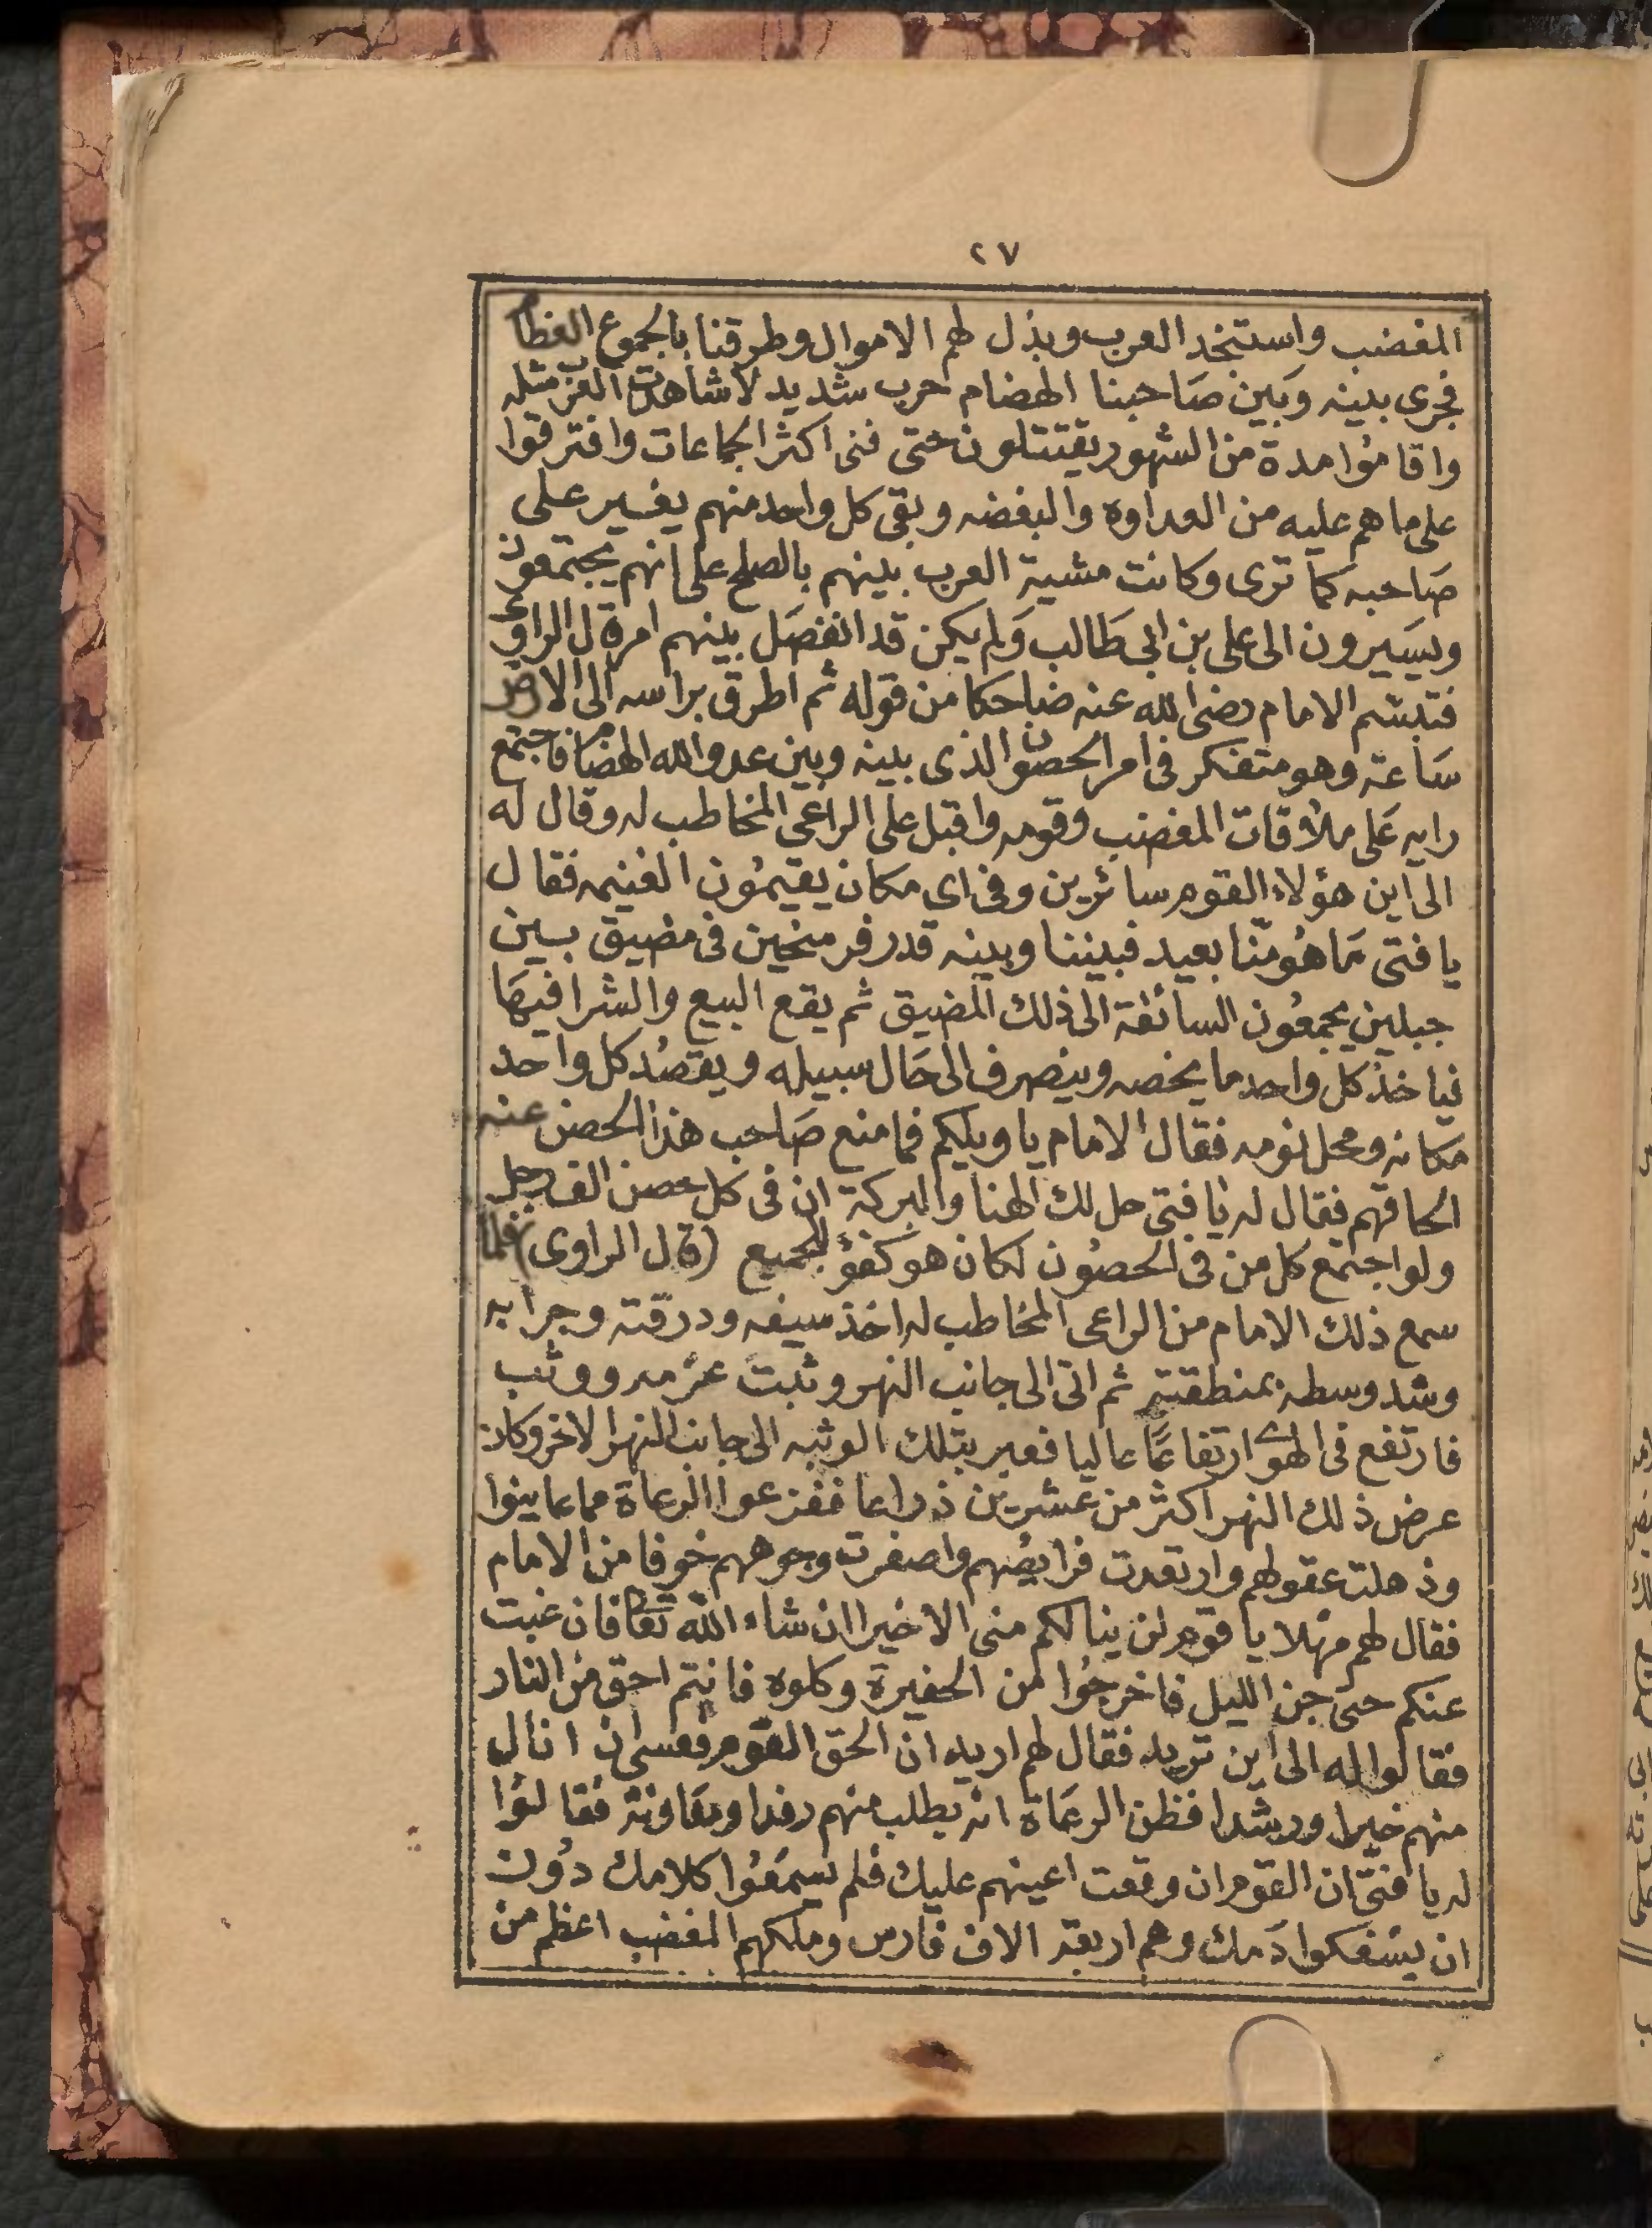 ٢٧
المغضب واستنجد العرب وبذل لهم الاموال وطرقنا بالجموع العظام
فجرى بينه وبين صاحبنا الهضام حرب شديد لا شاهدت العرب مثله
واقاموا مدة من الشهور يقتتلون حتى فنى اكثر الجماعات وافترقوا
على ما هم عليه من العداوه والبغضه وبقى كل واحد منهم يغير على
صاحبه كما ترى وكانت مشية العرب بينهم بالصلح على انهم يجتمعون
ويسيرون الى على بن ابى طالب ولم يكن قد انفصل بينهم امر قال الراوى
فتبسم الامام رضى الله عنه ضاحكا من قوله ثم اطرق براسه الى الارض
ساعة وهو متفكر فى امر الحصون الذى بينه وبين عدو الله الهضام فاجتمع
رايه على ملاوقات المغضب وقومه واقبل على الراعى المخاطب له وقال له
الى اين هؤلاء القوم سائرين وفى اى مكان يقيمون الغنيمه فقال
يا فتى ما هو منا بعيد فبيننا وبينه قدر فرسخين فى مضيق بين
جبلين يجمعون السائقة الى ذلك المضيق ثم يقع البيع والشرا فيها
فياخذ كل واحد ما يخصه وينصرف الى حال سبيله ويقصد كل واحد
مكانه ومحل نومه فقال الامام يا ويلكم فما منع صاحب هذا الحصن عنه
الحاقهم فقال له يا فتى حل لك الهنا والبركة ان فى كل حصن الف رجل
ولو اجتمع كل من فى الحصون لكان هو كفؤ للجميع (قال الراوى) فلما
سمع ذلك الامام من الراعى المخاطب له اخذ سيفه ودرقته وجرابه
وشد وسطه بمنطقته ثم اتى الى جانب النهر وثبت عزمه ووثب
فارتفع فى الهوى ارتفاعا عاليا فعبر بتلك الوثبه الى جانب النهر الاخر وكان
عرض ذلك النهر اكثر من عشرين ذراعا ففزعوا الرعاة مما عاينوا
وذهلت عقولهم وارتعدت فرايصهم واصفرت وجوههم خوفا من الامام
فقال لهم مهلا يا قوم لن ينالكم منى الا خيرا ان شاء الله تعا فان غبت
عنكم حتى جن الليل فاخرجوا من الحفيرة وكلوه فانتم احق من النار
فقالوا له الى اين تريد فقال لهم اريد ان الحق القوم فعسى ان انال
منهم خيرا ورشدا فظن الرعاة انه يطلب منهم رفدا ومعاونة فقالوا
له يا فتى ان القوم ان وقعت اعينهم عليك فلم يسمعوا كلامك دون
ان يسفكوا دمك وهم اربعة الاف فارس وملكهم المغضب اعظم من